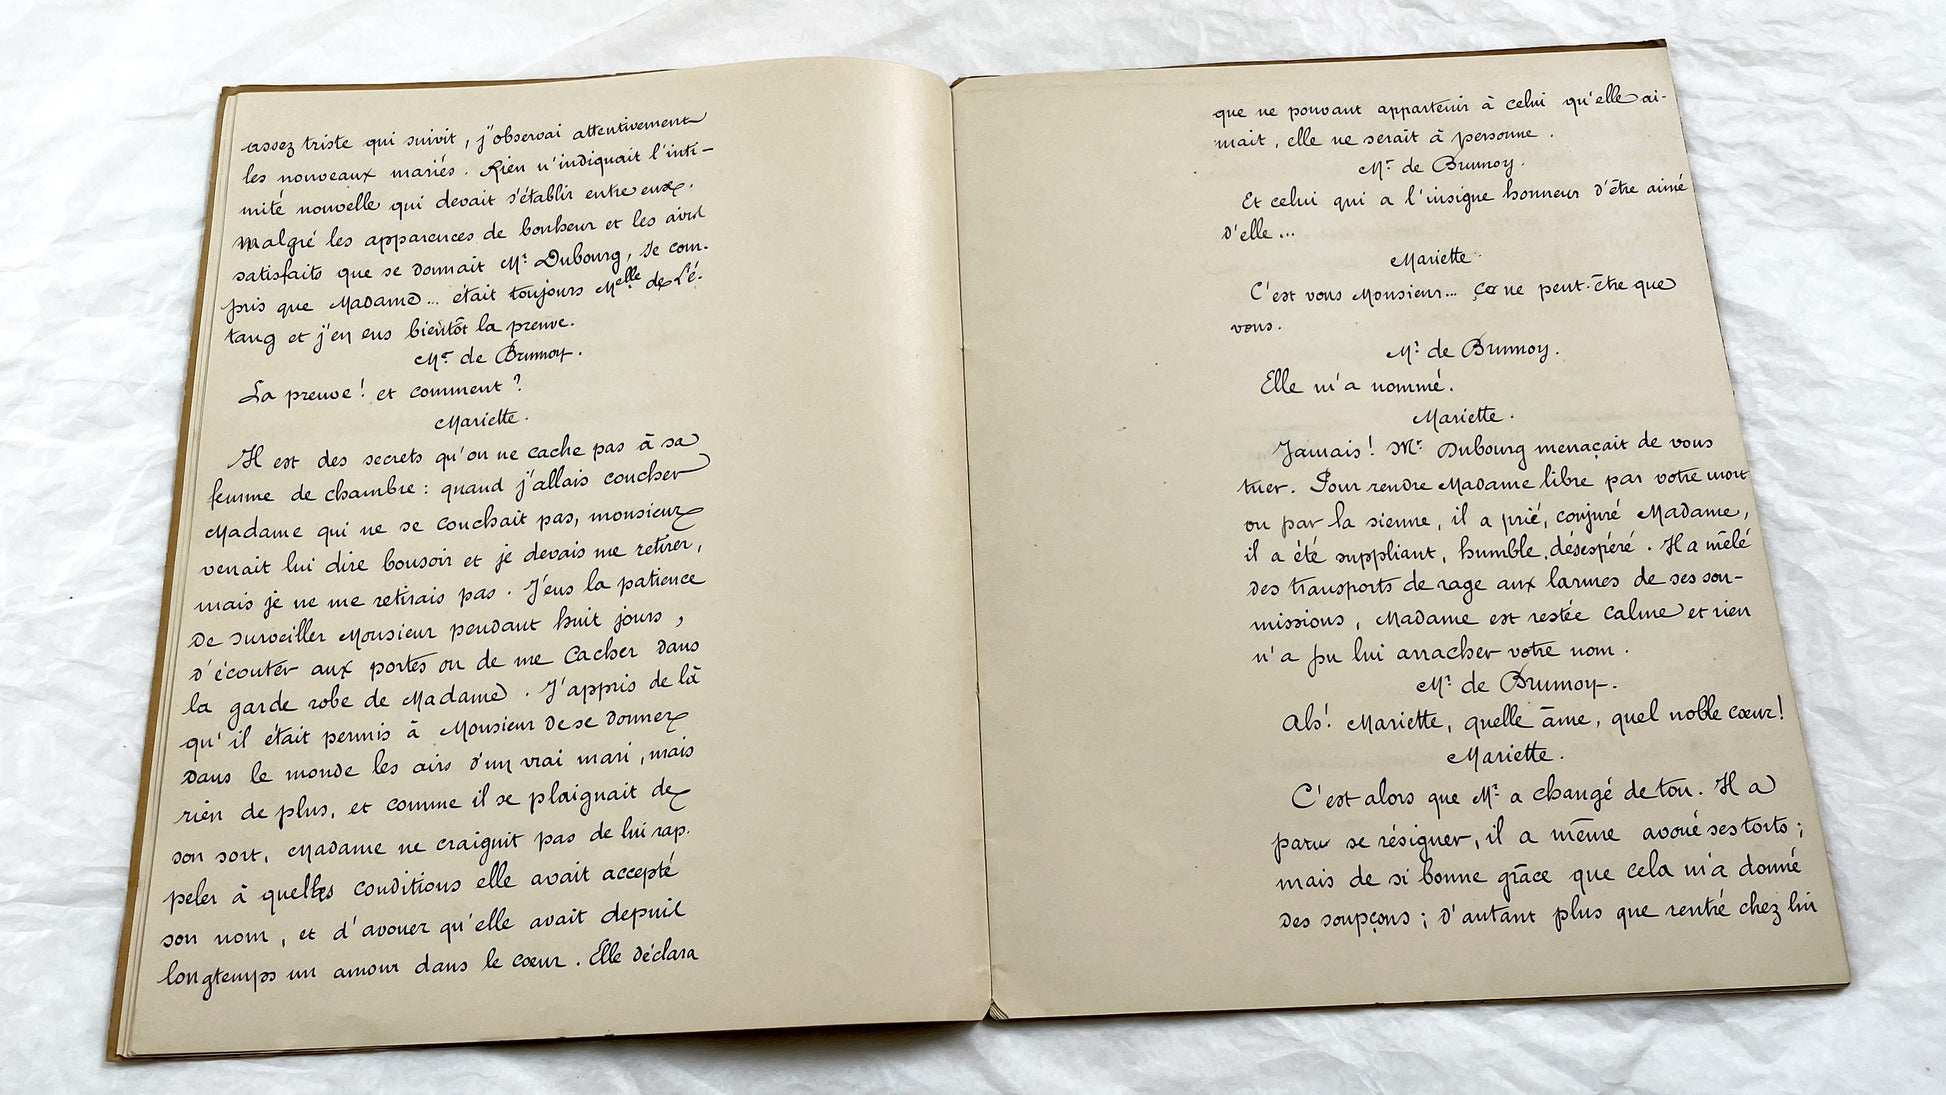 assez triste qui suivit, j'observai attentivement
les nouveaux mariés. Rien n'indiquait l'inti-
mité nouvelle qui devait s'établir entre eux.
Malgré les apparences de bonheur et les airs
satisfaits que se donnait Mr Dubourg, je com-
pris que Madame... était toujours Melle de L'é-
tang et j'en eus bientôt la preuve.
Mr de Brumoy.
La preuve! et comment?
Mariette.
Il est des secrets qu'on ne cache pas à sa
femme de chambre: quand j'allais coucher
Madame qui ne se couchait pas, monsieur
venait lui dire bonsoir et je devais me retirer,
mais je ne me retirais pas. J'eus la patience
de surveiller Monsieur pendant huit jours,
d'écouter aux portes ou de me cacher dans
la garde robe de Madame. J'appris de là
qu'il était permis à Monsieur de se donner
dans le monde les airs d'un vrai mari, mais
rien de plus, et comme il se plaignait de
son sort, Madame ne craignit pas de lui rap-
peler à quelles conditions elle avait accepté
son nom, et d'avouer qu'elle avait depuis
longtemps un amour dans le cœur. Elle déclara
que ne pouvant appartenir à celui qu'elle ai-
mait, elle ne serait à personne.
Mr de Brumoy.
Et celui qui a l'insigne honneur d'être aimé
d'elle...
Mariette.
C'est vous Monsieur... Ce ne peut-être que
vous.
Mr de Brumoy.
Elle m'a nommé.
Mariette.
Jamais! Mr Dubourg menaçait de vous
tuer. Pour rendre Madame libre par votre mort
ou par la sienne, il a prié, conjuré Madame,
il a été suppliant, humble, désespéré. Il a mêlé
des transports de rage aux larmes de ses sou-
missions, Madame est restée calme et rien
n'a pu lui arracher votre nom.
Mr de Brumoy.
Ah! Mariette, quelle âme, quel noble cœur!
Mariette.
C'est alors que Mr a changé de ton. Il a
paru se résigner, il a même avoué ses torts;
mais de si bonne grâce que cela m'a donné
des soupçons; d'autant plus que rentré chez lui